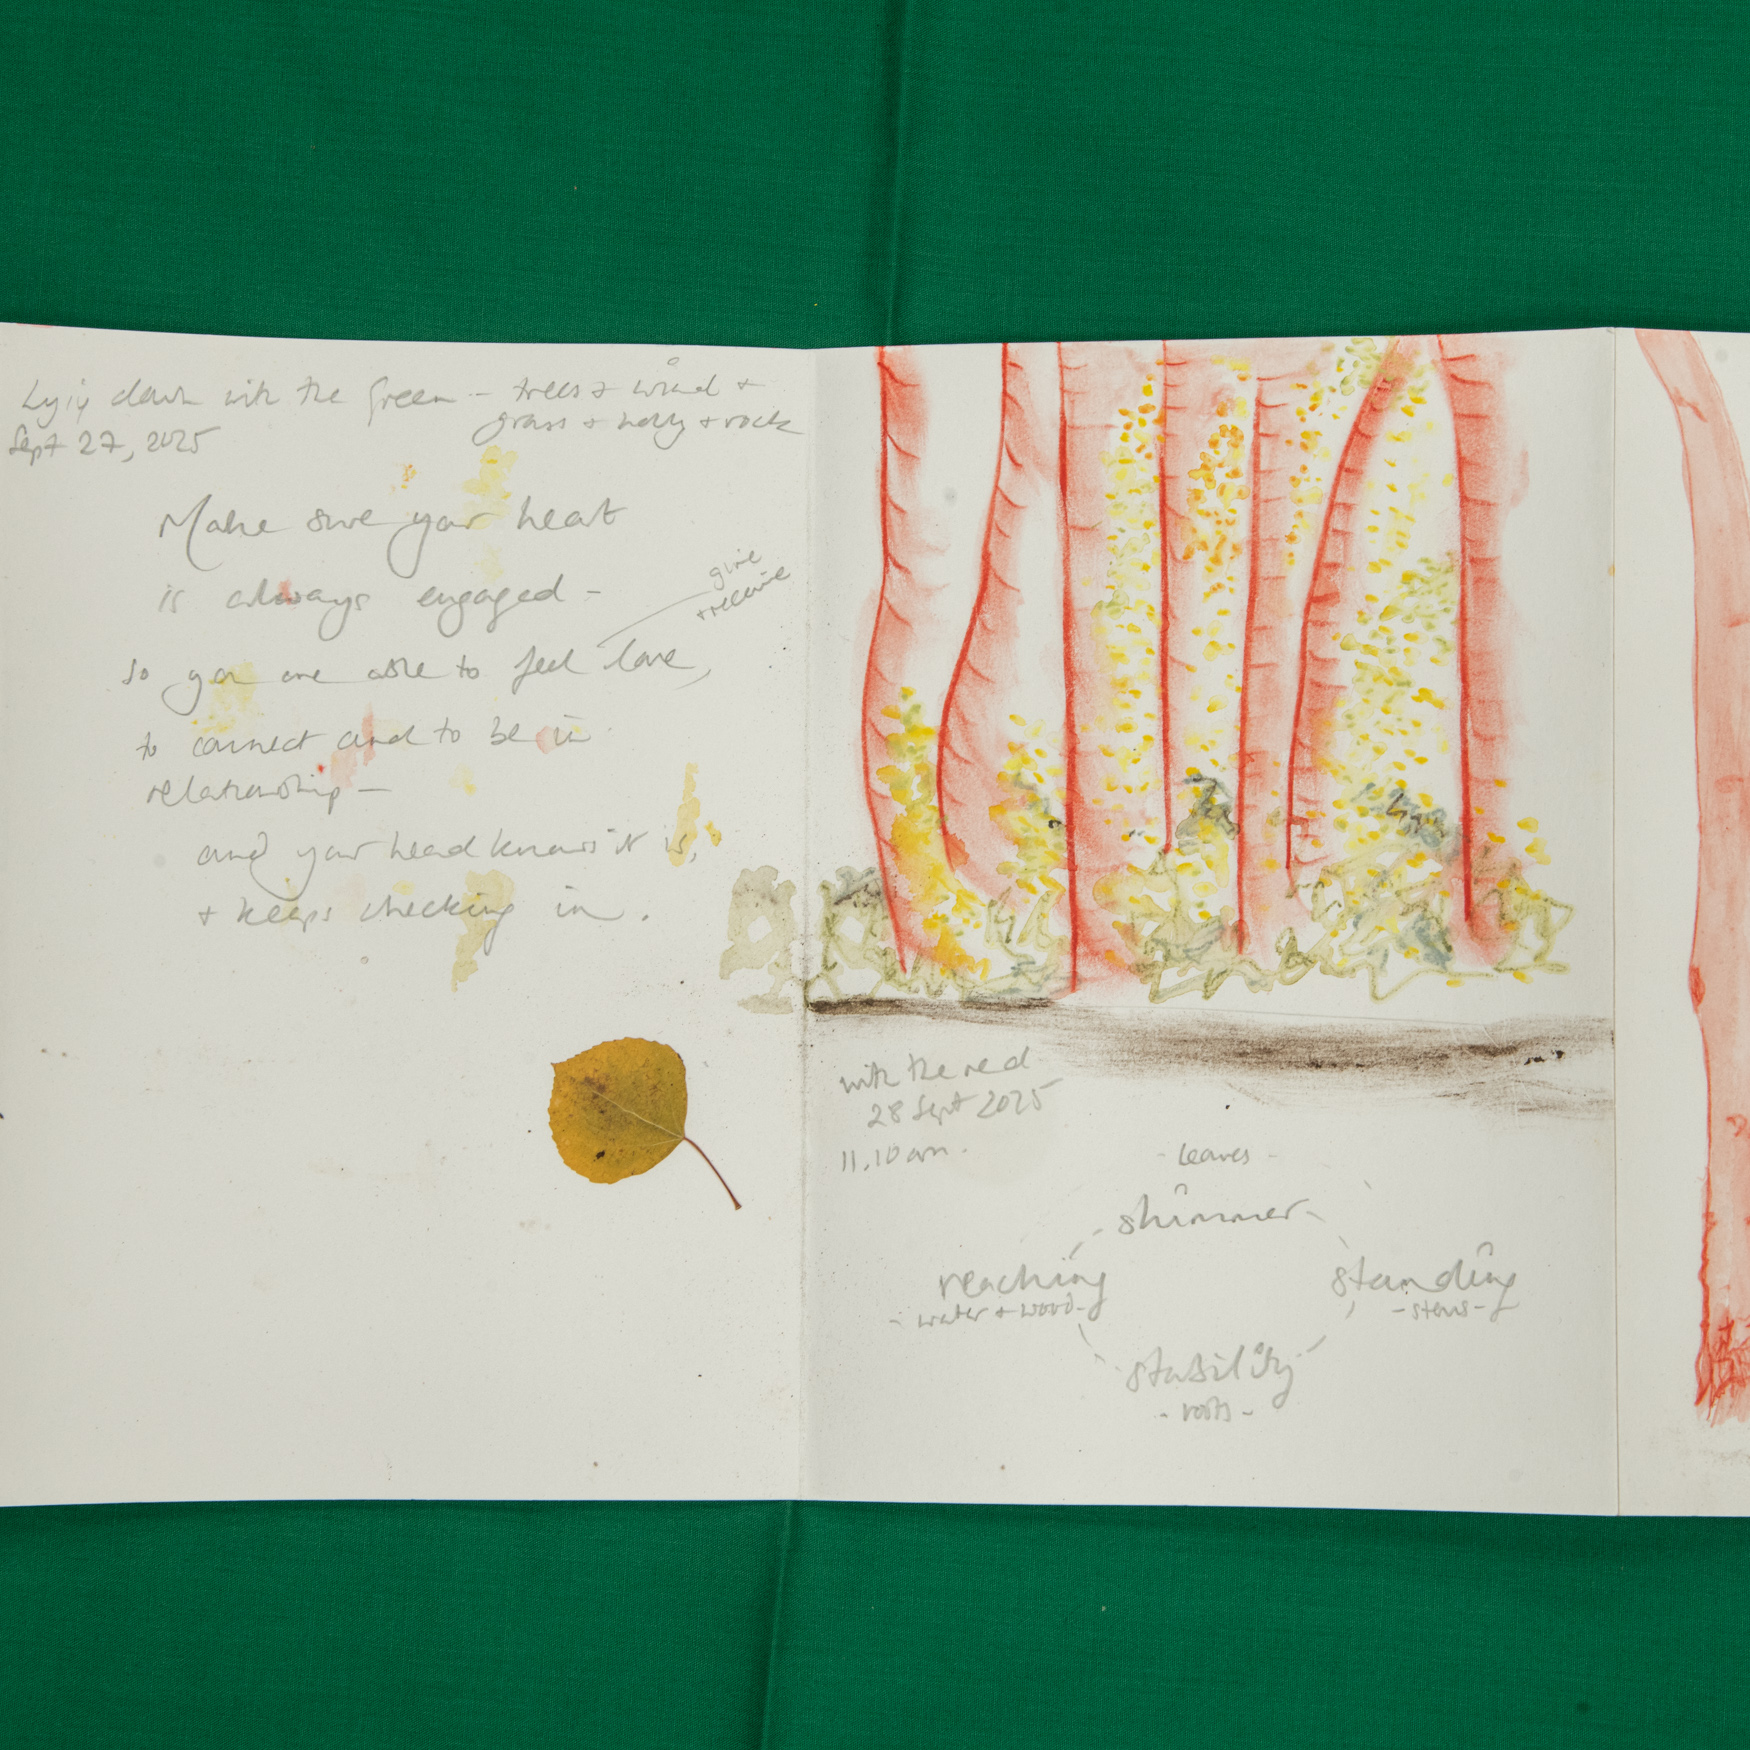 Lying down with the Green - trees + wind +
grass + holly + rock
Sept 27, 2025
Make sure your heart
is always engaged -
give
+ receive
so you are able to feel love,
to connect and to be in
relationship -
and your head knows it is,
+ keeps checking in.
with the red
28 Sept 2025
11.10am.
- leaves -
shimmer
reaching
- water + wood -
standing
- stems -
stability
- roots -